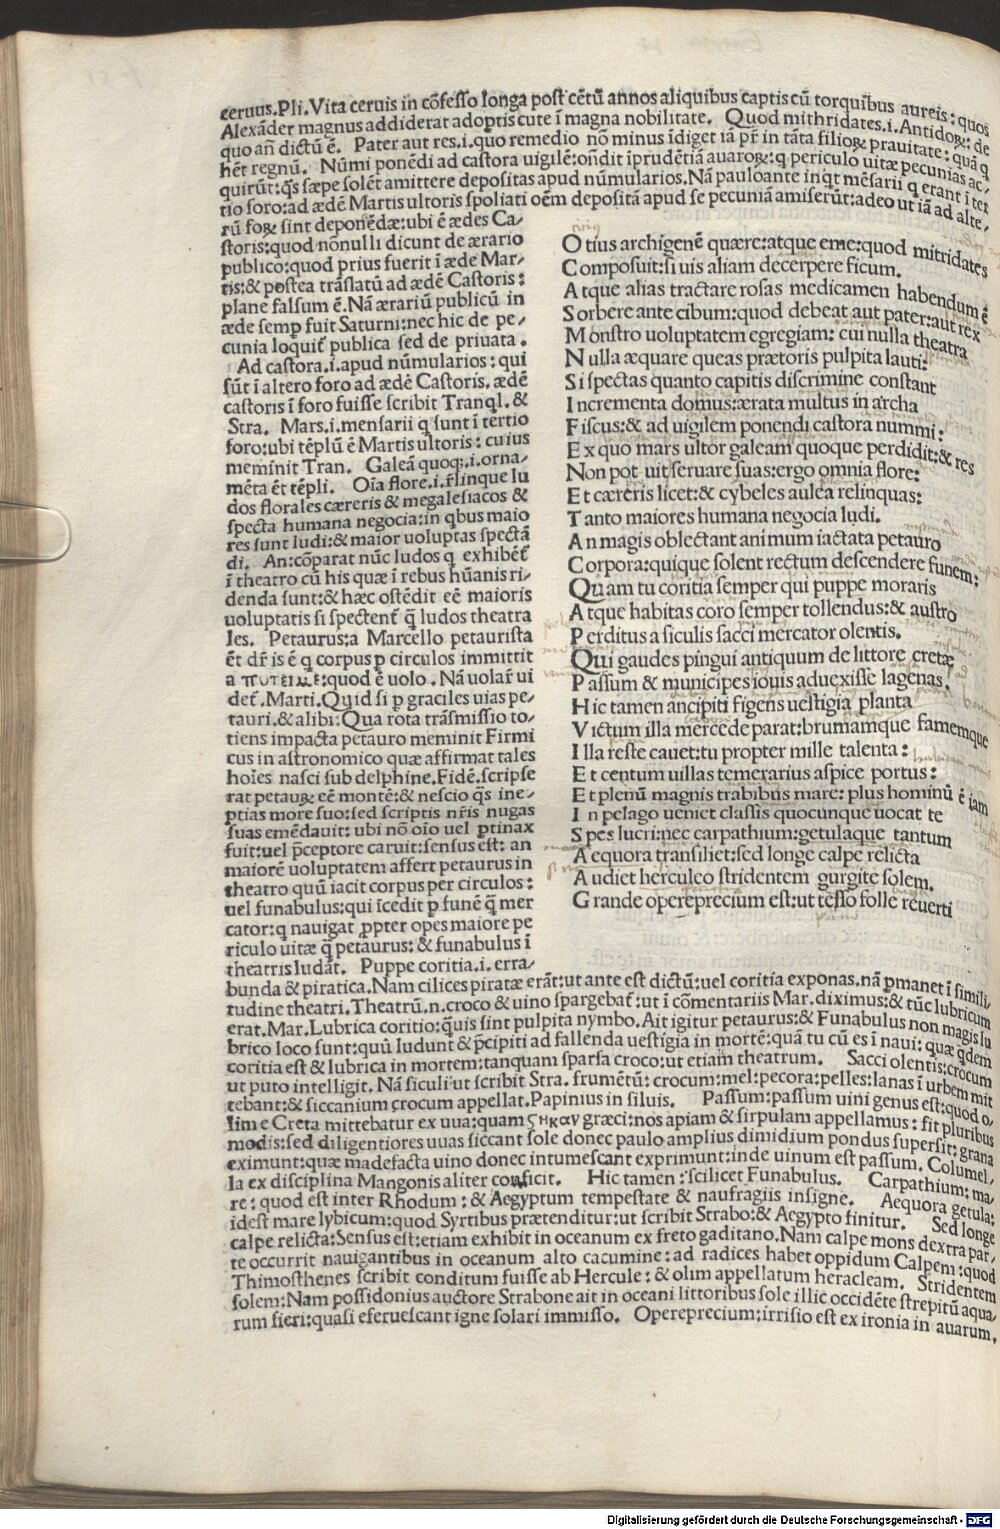 ceruus.Pli.Vita ceruis in cõfesso longa post cẽtũ annos aliquibus captis cũ torquibus aureis:quos
Alexãder magnus addiderat adoptis cute ĩ magna nobilitate. Quod mithridates.i.Antidoꝝ: de
quo añ dictũ ẽ. Pater aut res.i.quo remedio nõ minus ĩdiget iã pr̃ in tãta filioꝝ prauitate: quã q
hẽt regnũ. Nũmi ponẽdi ad castora uigilẽ:oñdit ĩprudẽtiã auaroꝝ:q periculo uitæ pecunias ac-
quirũt:q̃s sæpe solẽt amittere depositas apud nũmularios.Nã pauloante inqt mẽsarii q erant ĩ ter
tio foro:ad ædẽ Martis ultoris spoliati oẽm depositã apud se pecuniã amiserũt:adeo ut iã ad alte-
rũ foꝝ sint deponẽdæ:ubi ẽ ædes Ca-
storis:quod nõnulli dicunt de ærario
publico:quod prius fuerit ĩ æde Mar-
tis:& postea trãslatũ ad ædẽ Castoris:
plane falsum ẽ.Nã ærariũ publicũ in
æde semp fuit Saturni:nec hic de pe-
cunia loquit̃ publica sed de priuata.
Ad castora.i.apud nũmularios: qui
sũt ĩ altero foro ad ædẽ Castoris. ædẽ
castoris ĩ foro fuisse scribit Tranql. &
Stra. Mars.i.mensarii q sunt ĩ tertio
foro:ubi tẽplũ ẽ Martis ultoris: cuius
meminit Tran. Galeã quoq;.i.orna-
mẽta ẽt tẽpli. Oĩa flore.i.r̃linque lu
dos florales cæreris & megalesiacos &
specta humana negocia:in qbus maio
res sunt ludi:& maior uoluptas spectã
di. An:cõparat nũc ludos q exhibẽt̃
ĩ theatro cũ his quæ ĩ rebus hũanis ri-
denda sunt:& hæc ostẽdit eẽ maioris
uoluptatis si spectent̃ q̃ ludos theatra
les. Petaurus:a Marcello petaurista
ẽt dr̃ is ẽ q corpus p circulos immittit
a πυτειμε:quod ẽ uolo. Nã uolar̃ ui
det̃.Marti.Quid si p graciles uias pe-
tauri.& alibi: Qua rota trãsmissio to-
tiens impacta petauro meminit Firmi
cus in astronomico quæ affirmat tales
hoĩes nasci sub delphine.Fidẽ.scripse
rat petauꝝ eẽ montẽ:& nescio q̃s ine-
ptias more suo:sed scriptis nr̃is nugas
suas emẽdauit: ubi nõ oĩo uel ptinax
fuit:uel p̃ceptore caruit:sensus est: an
maiorẽ uoluptatem affert petaurus in
theatro quũ iacit corpus per circulos:
uel funabulus:qui ĩcedit p funẽ q̃ mer
cator:q nauigat ppter opes maiore pe
riculo uitæ q̃ petaurus: & funabulus ĩ
theatris ludãt. Puppe coritia.i. erra-
O tius archigenẽ quære:atque eme:quod mitridates
C omposuit:si uis aliam decerpere ficum.
A tque alias tractare rosas medicamen habendum ẽ
S orbere ante cibum:quod debeat aut pater:aut rex
M onstro uoluptatem egregiam: cui nulla theatra
N ulla æquare queas prætoris pulpita lauti:
S i spectas quanto capitis discrimine constant
I ncrementa domus:ærata multus in archa
F iscus:& ad uigilem ponendi castora nummi:
E x quo mars ultor galeam quoque perdidit:& res
N on pot uit seruare suas:ergo omnia flore:
E t cæreris licet:& cybeles aulea relinquas:
T anto maiores humana negocia ludi.
A n magis oblectant animum iactata petauro
C orpora:quique solent rectum descendere funem:
Q uam tu coritia semper qui puppe moraris
A tque habitas coro semper tollendus:& austro
P erditus a siculis sacci mercator olentis.
Q ui gaudes pingui antiquum de littore cretæ
P assum & municipes iouis aduexisse lagenas.
H ic tamen ancipiti figens uestigia planta
V ictum illa mercede parat:brumamque famemque
I lla reste cauet:tu propter mille talenta:
E t centum uillas temerarius aspice portus:
E t plenũ magnis trabibus mare: plus hominũ ẽ iam
I n pelago ueniet classis quocunque uocat te
S pes lucri:nec carpathium:getulaque tantum
A equora transiliet:sed longe calpe relicta
A udiet herculeo stridentem gurgite solem.
G rande opereprecium est:ut tesso folle reuerti
bunda & piratica.Nam cilices piratæ erãt:ut ante est dictũ:uel coritia exponas.nã pmanet ĩ simili-
tudine theatri.Theatrũ.n.croco & uino spargebat̃:ut ĩ cõmentariis Mar.diximus:& tũc lubricum
erat.Mar.Lubrica coritio:q̃uis sint pulpita nymbo.Ait igitur petaurus:& Funabulus non magis lu
brico loco sunt:quũ ludunt & p̃cipiti ad fallenda uestigia in mortẽ:quã tu cũ es ĩ naui: quæ q̃dem
coritia est & lubrica in mortem:tanquam sparsa croco:ut etiam theatrum. Sacci olentis:crocum
ut puto intelligit. Nã siculi ut scribit Stra. frumẽtũ: crocum:mel:pecora:pelles:lanas ĩ urbem mit
tebant:& siccanium crocum appellat.Papinius in siluis. Passum:passum uini genus est:quod o-
lim e Creta mittebatur ex uua:quam ϛηκαν græci:nos apiam & sirpulam appellamus: fit pluribus
modis:sed diligentiores uuas siccant sole donec paulo amplius dimidium pondus supersit: grana
eximunt:quæ madefacta uino donec intumescant exprimunt:inde uinum est passum. Columel-
la ex disciplina Mangonis aliter conficit. Hic tamen:scilicet Funabulus. Carpathium: ma-
re: quod est inter Rhodum: & Aegyptum tempestate & naufragiis insigne. Aequora getula:
idest mare lybicum:quod Syrtibus prætenditur:ut scribit Strabo:& Aegypto finitur. Sed longe
calpe relicta:Sensus est:etiam exhibit in oceanum ex freto gaditano.Nam calpe mons dextra par-
te occurrit nauigantibus in oceanum alto cacumine: ad radices habet oppidum Calpem:quod
Thimosthenes scribit conditum fuisse ab Hercule: & olim appellatum heracleam. Stridentem
solem:Nam possidonius auctore Strabone ait in oceani littoribus sole illic occidẽte strepitũ aqua-
rum fieri:quasi eferuescant igne solari immisso. Opereprecium:irrisio est ex ironia in auarum,
Digitalisierung gefördert durch die Deutsche Forschungsgemeinschaft - DFG